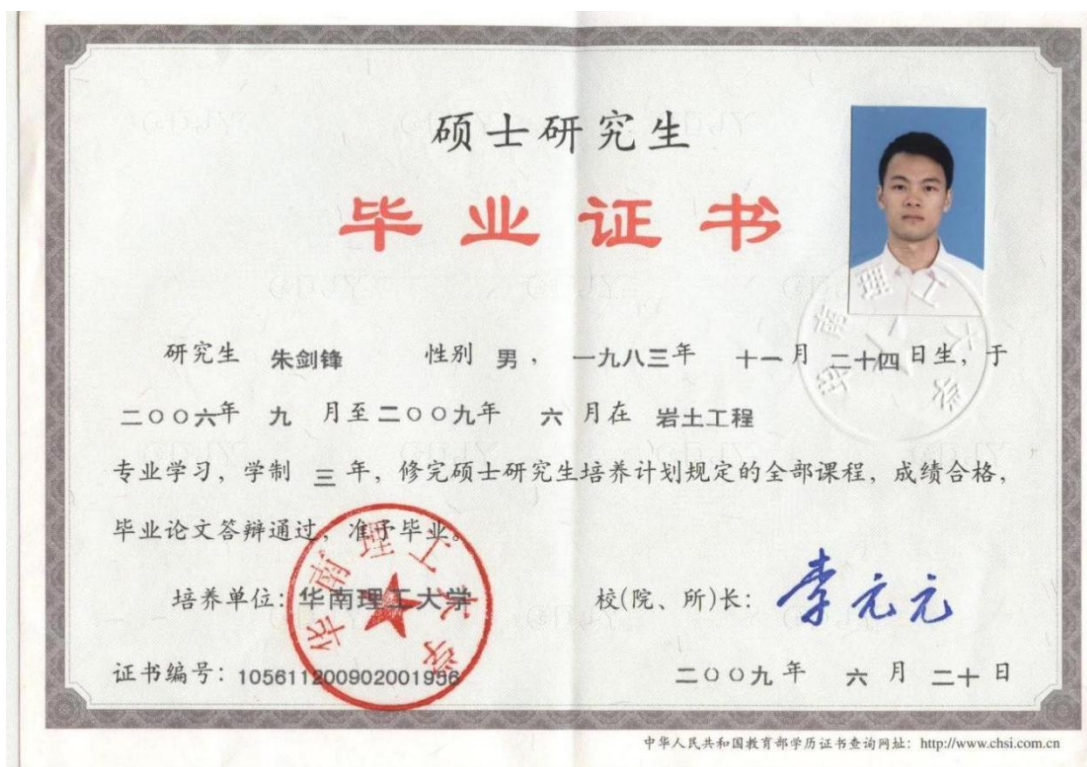 硕士研究生
毕业证书
研究生 朱剑锋 性别 男，一九八三年 十一月 二十四日生，于
二〇〇六年 九 月至二〇〇九年 六 月在 岩土工程
专业学习，学制 三 年，修完硕士研究生培养计划规定的全部课程，成绩合格，
毕业论文答辩通过，准予毕业。
培养单位：华南理工大学 校(院、所)长：李元元
华南理工大学
华南理工大学
证书编号：105611200902001936 二〇〇九年 六 月 二十 日
中华人民共和国教育部学历证书查询网址：http://www.chsi.com.cn